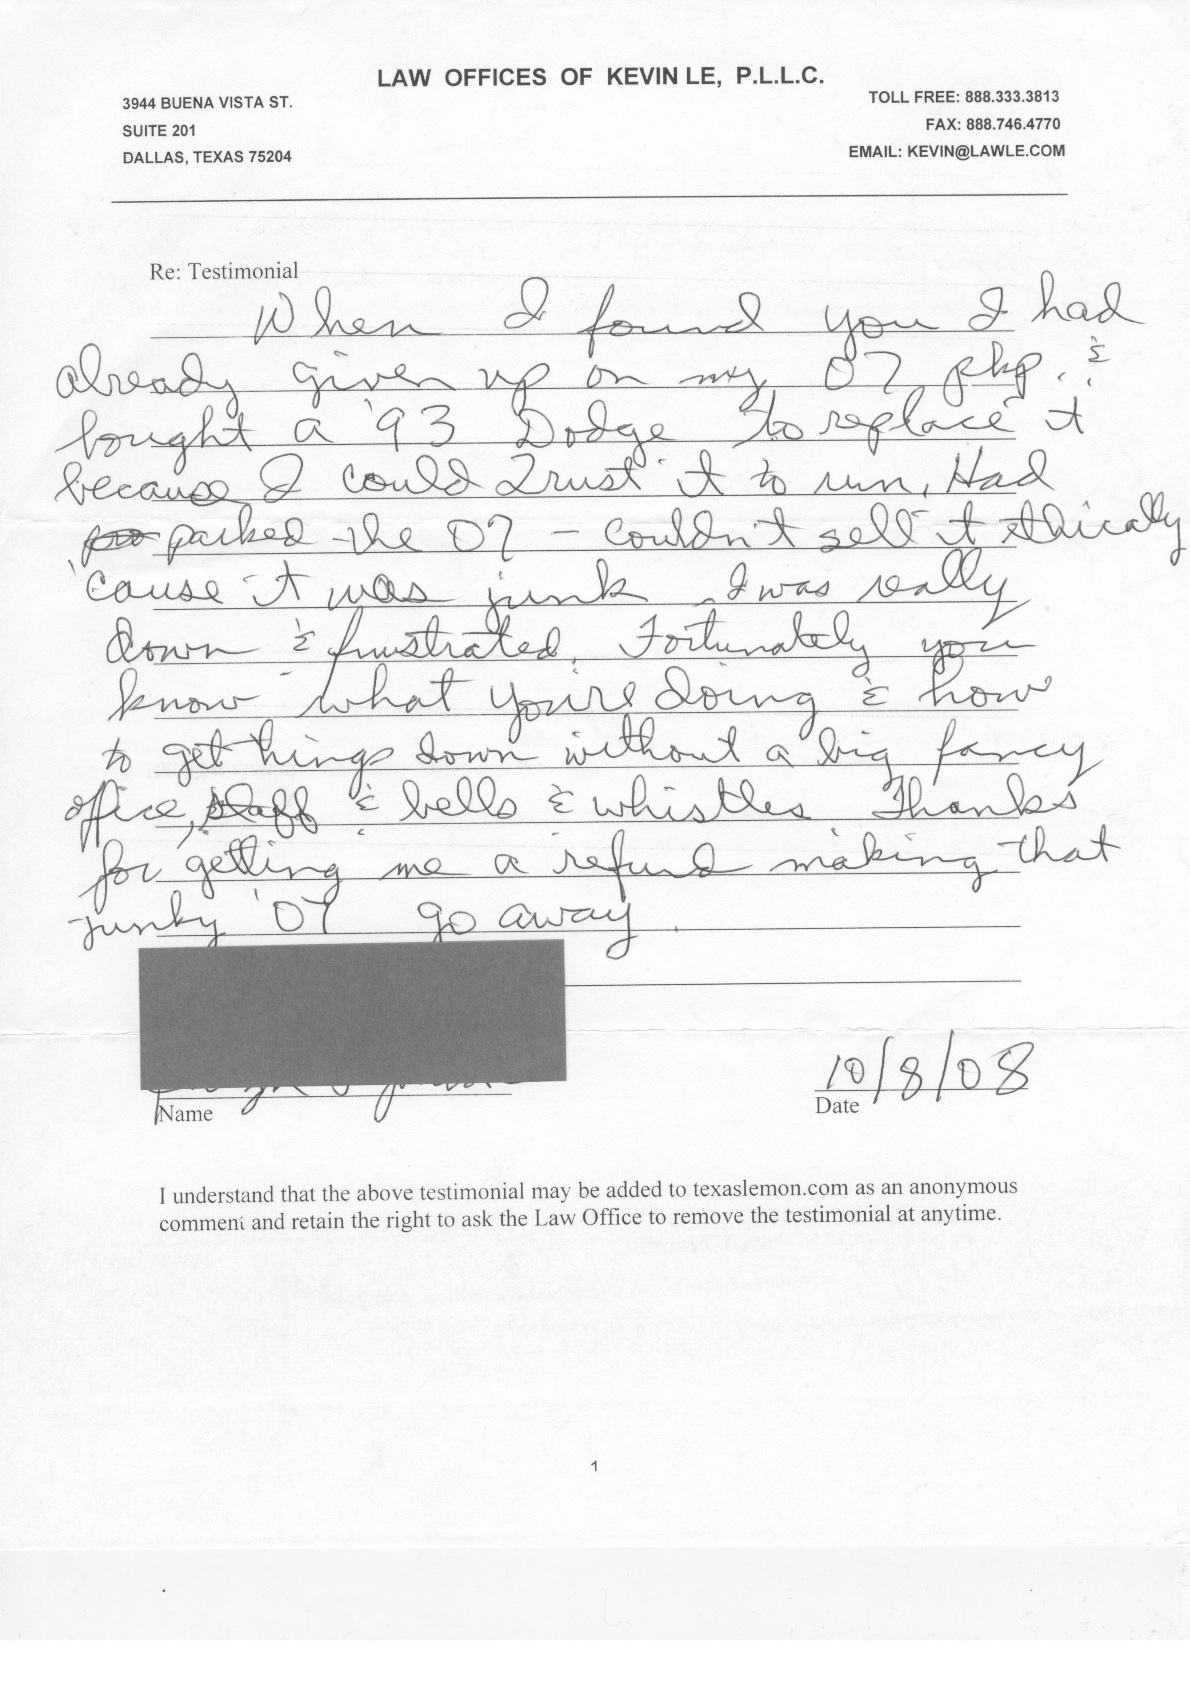 LAW OFFICES OF KEVIN LE, P.L.L.C.
3944 BUENA VISTA ST.
SUITE 201
DALLAS, TEXAS 75204
TOLL FREE: 888.333.3813
FAX: 888.746.4770
EMAIL: KEVIN@LAWLE.COM
Re: Testimonial
When I found you I had
already given up on my 07 pkp. &
bought a '93 Dodge to replace it
because I could trust it to run. Had
parked the 07 – couldn't sell it ethically
'cause it was junk. I was really
down & frustrated. Fortunately you
know what you're doing & how
to get things down without a big fancy
office, staff & bells & whistles Thanks
for getting me a refund making that
junky '07 go away.
10/8/08
Name
Date
I understand that the above testimonial may be added to texaslemon.com as an anonymous
comment and retain the right to ask the Law Office to remove the testimonial at anytime.
1